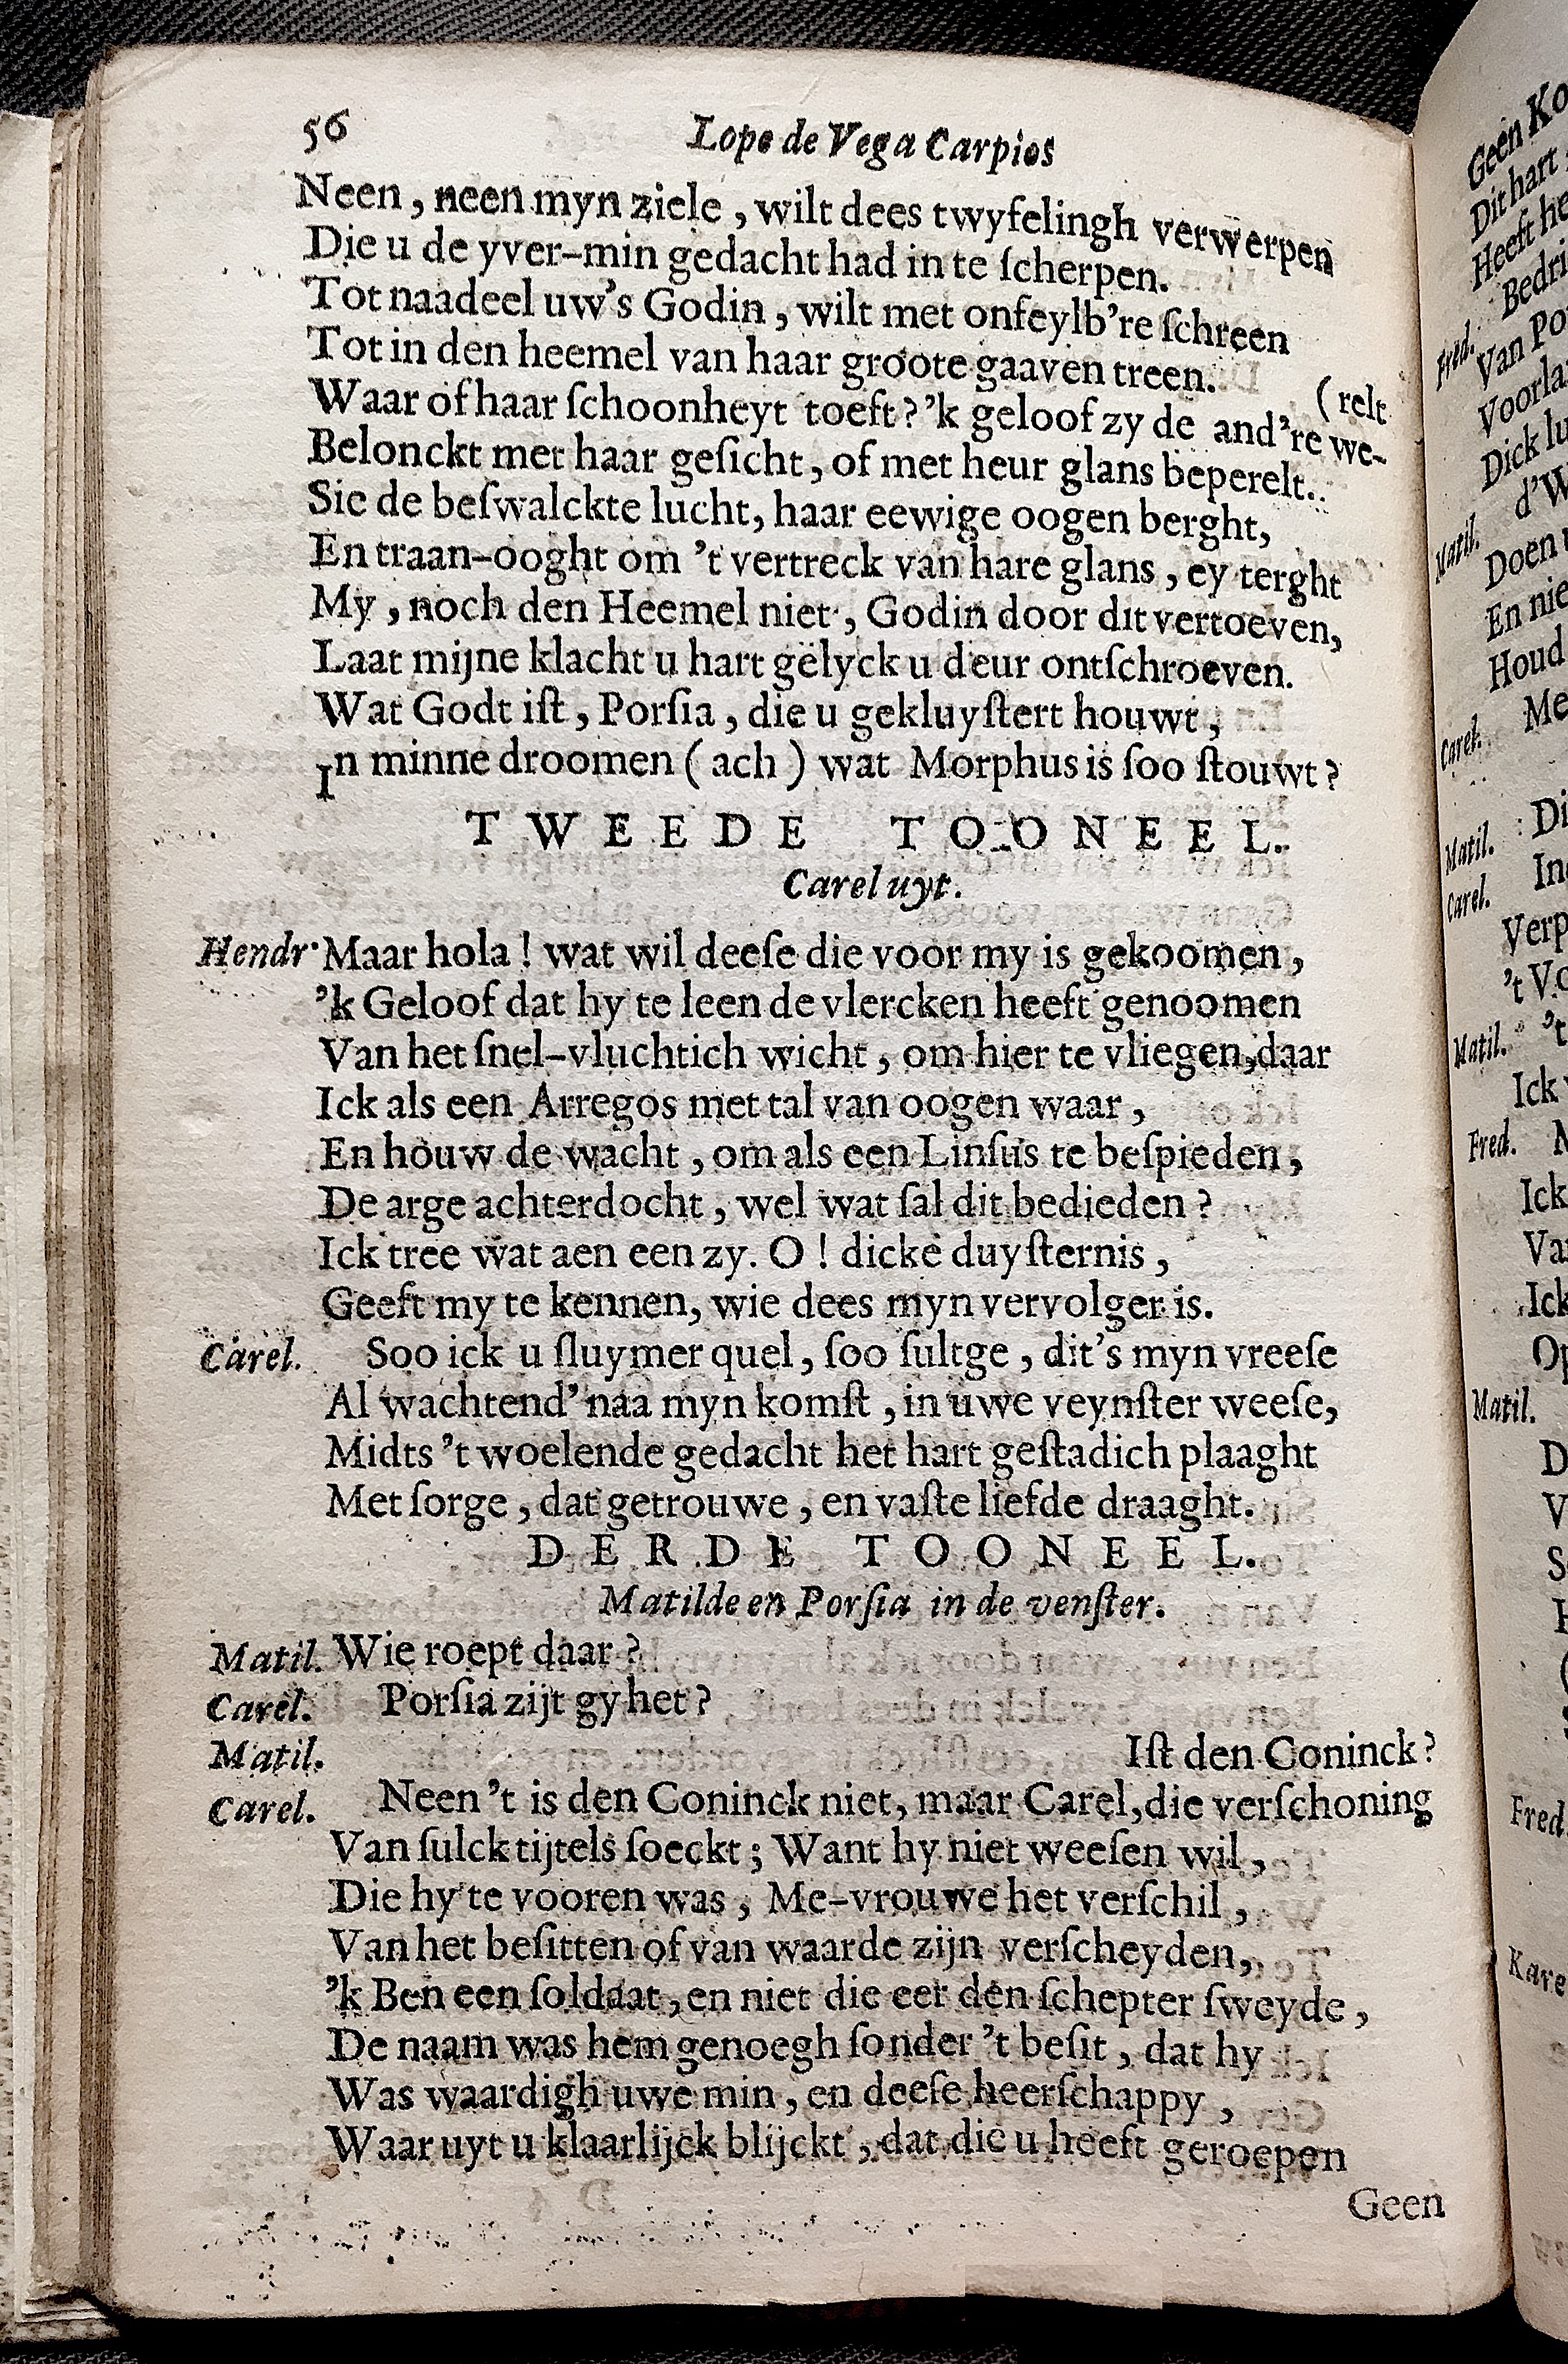 56 Lope de Vega Carpios
Neen, neen myn ziele, wilt dees twyfelingh verwerpen
Die u de yver-min gedacht had in te ſcherpen.
Tot naadeel uw's Godin, wilt met onfeylb're ſchreen
Tot in den heemel van haar groote gaaven treen.
(relt
Waar of haar ſchoonheyt toeft? 'k geloof zy de and're we-
Belonckt met haar geſicht, of met heur glans beperelt.
Sie de beſwalckte lucht, haar eewige oogen berght,
En traan-ooght om 't vertreck van hare glans, ey terght
My, noch den Heemel niet, Godin door dit vertoeven,
Laat mijne klacht u hart gelyck u deur ontſchroeven.
Wat Godt iſt, Porſia, die u gekluyſtert houwt,
In minne droomen (ach) wat Morphus is ſoo ſtouwt?
TWEEDE TOONEEL.
Carel uyt.
Hendr. Maar hola! wat wil deeſe die voor my is gekoomen,
'k Geloof dat hy te leen de vlercken heeft genoomen
Van het ſnel-vluchtich wicht, om hier te vliegen, daar
Ick als een Arregos met tal van oogen waar,
En houw de wacht, om als een Linſus te beſpieden,
De arge achterdocht, wel wat ſal dit bedieden?
Ick tree wat aen een zy. O! dicke duyſternis,
Geeft my te kennen, wie dees myn vervolger is.
Carel. Soo ick u ſluymer quel, ſoo ſultge, dit's myn vreeſe
Al wachtend' naa myn komſt, in uwe veynſter weeſe,
Midts 't woelende gedacht het hart geſtadich plaaght
Met ſorge, dat getrouwe, en vaſte liefde draaght.
DERDE TOONEEL.
Matilde en Porſia in de venſter.
Matil. Wie roept daar?
Carel. Porſia zijt gy het?
Matil. Iſt den Coninck?
Carel. Neen 't is den Coninck niet, maar Carel, die verſchoning
Van ſulck tijtels ſoeckt; Want hy niet weeſen wil,
Die hy te vooren was, Me-vrouwe het verſchil,
Van het beſitten of van waarde zijn verſcheyden,
'k Ben een ſoldaat, en niet die eer den ſchepter ſweyde,
De naam was hem genoegh ſonder 't beſit, dat hy
Was waardigh uwe min, en deeſe heerſchappy,
Waar uyt u klaarlijck blijckt, dat die u heeft geroepen
Geen
Geen
Dit hart
Heeft
Fred.
Van
Dick
Matil.
Doen
En
Houd
Carel.
Matil.
Carel.
Matil.
Ick
Fred.
Ick
Matil.
Fred.